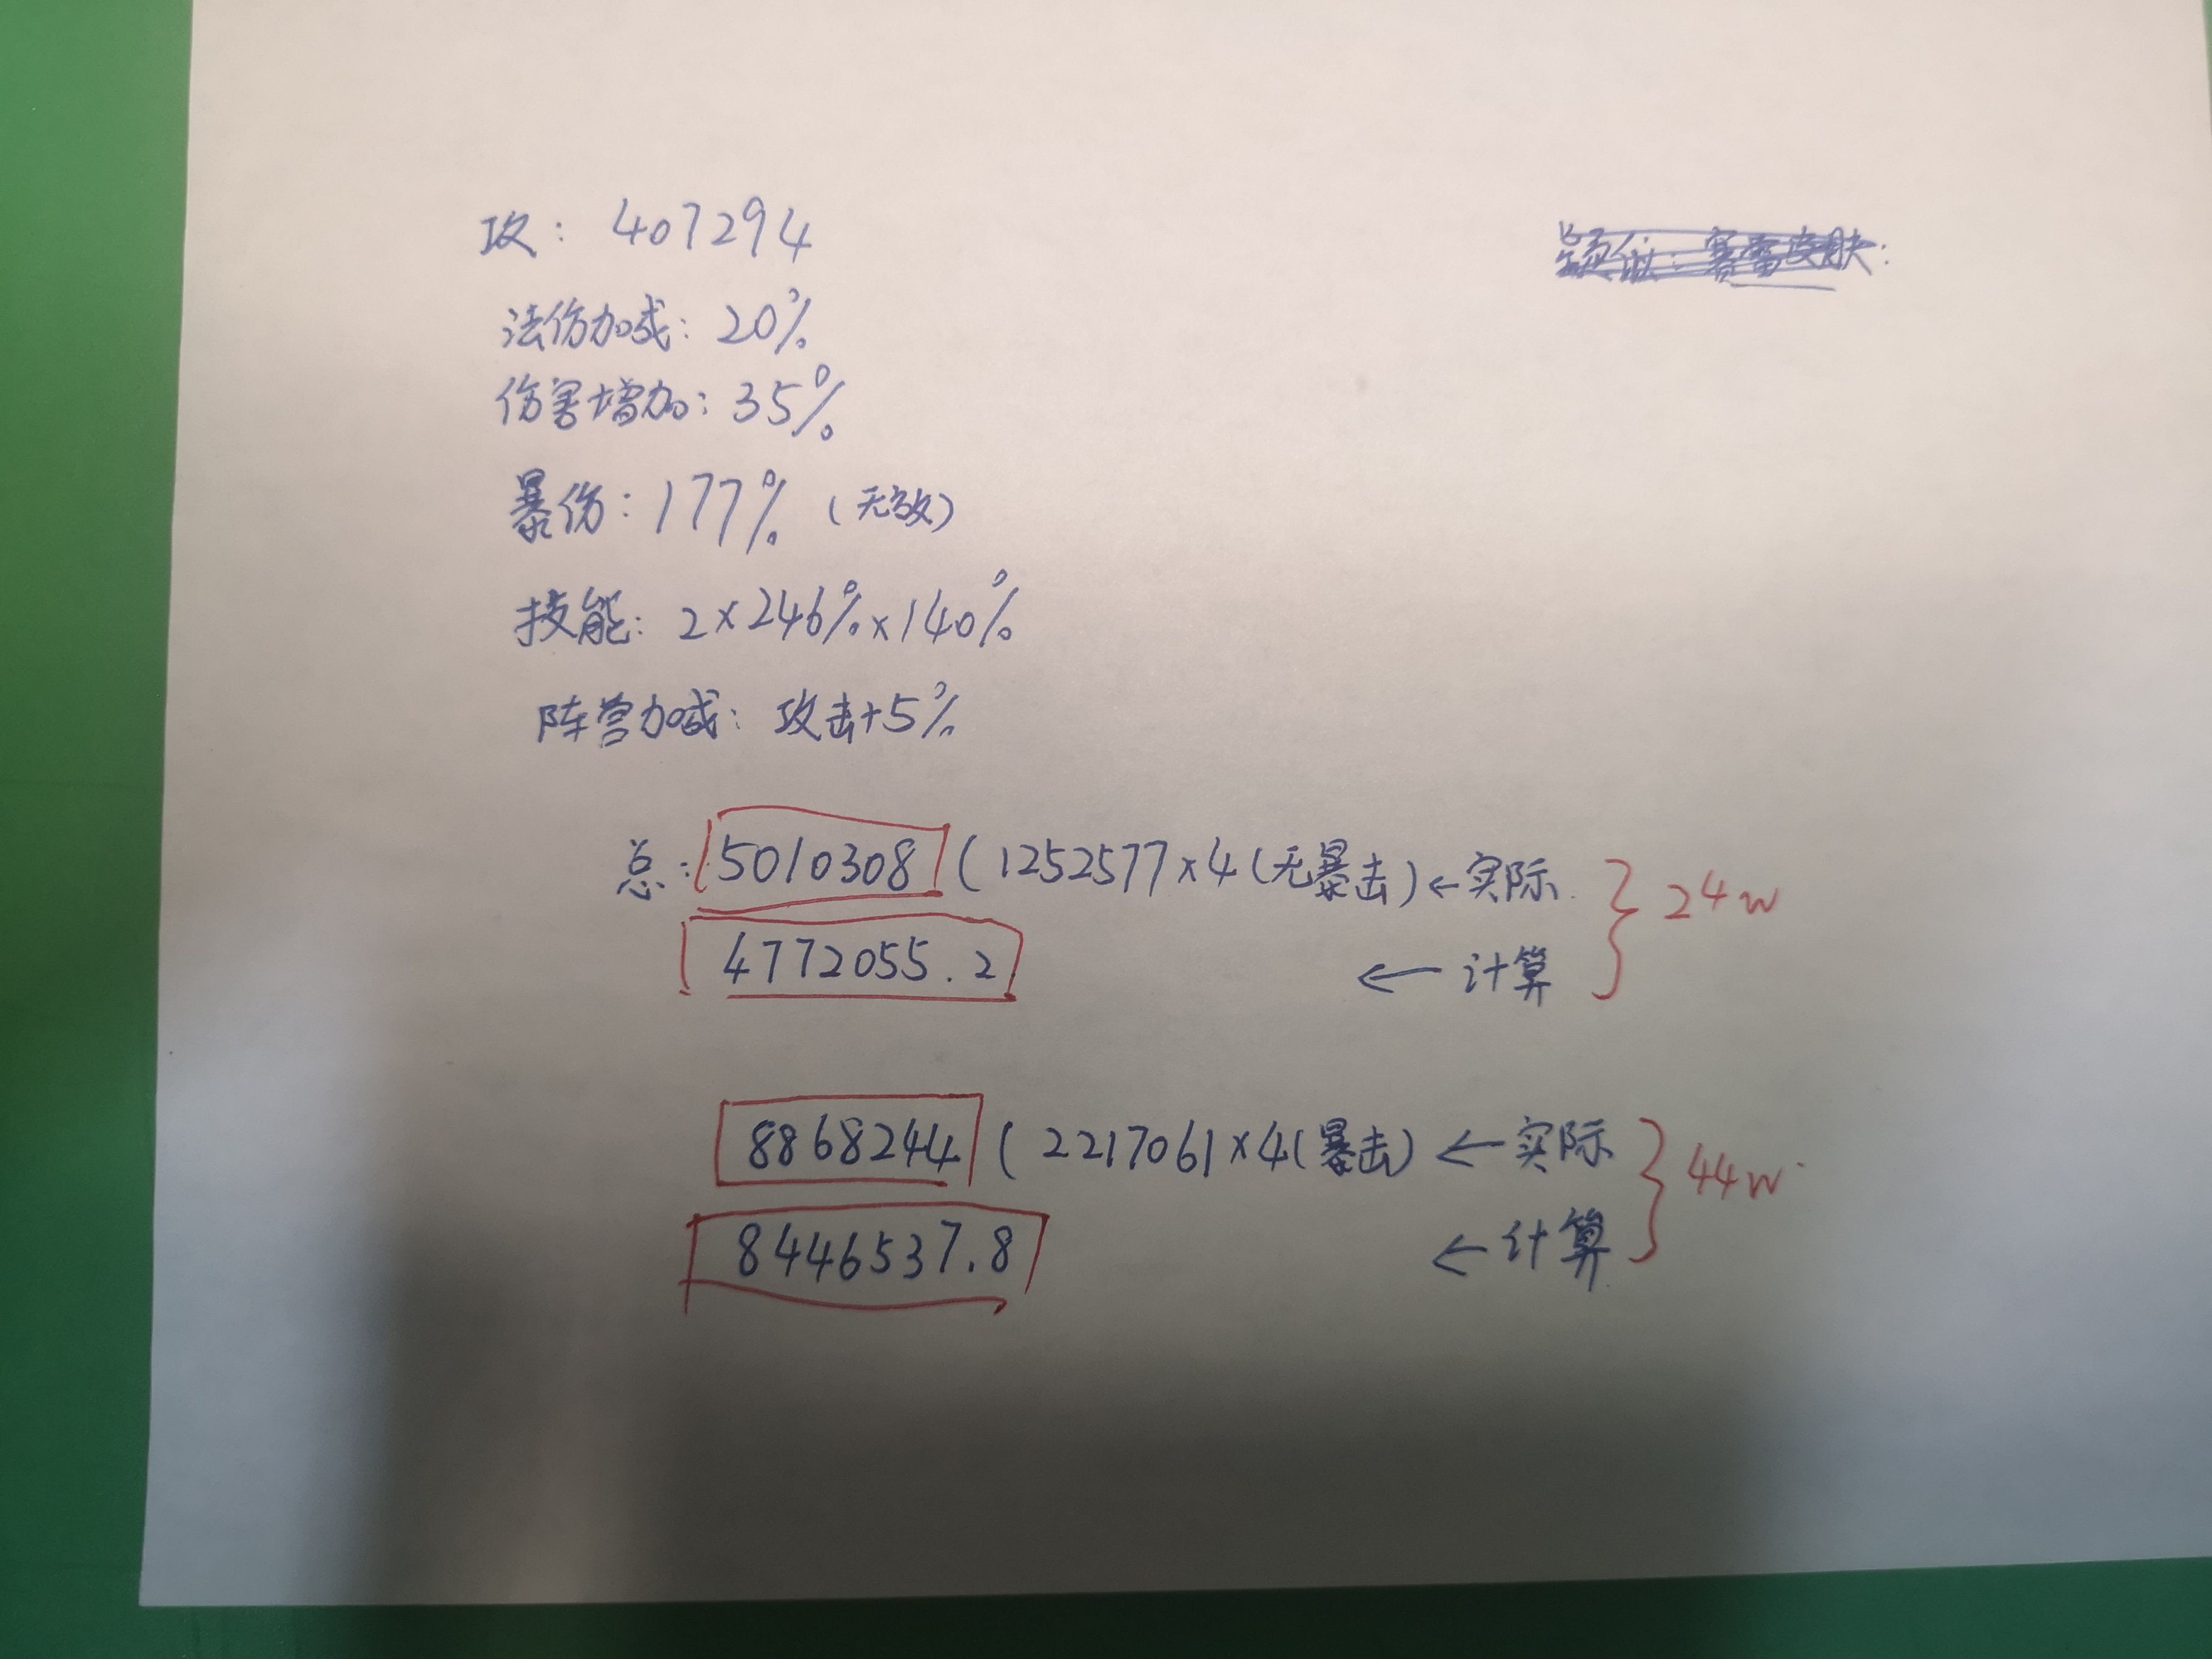 攻：407294
法伤加成：20%
伤害增加：35%
暴伤：177%（无效）
技能：2×246%×140%
阵营加成：攻击+5%
总：5010308（1252577×4（无暴击）←实际 } 24w
4772055.2 ← 计算
8868244（2217061×4（暴击）←实际 } 44w
8446537.8 ← 计算